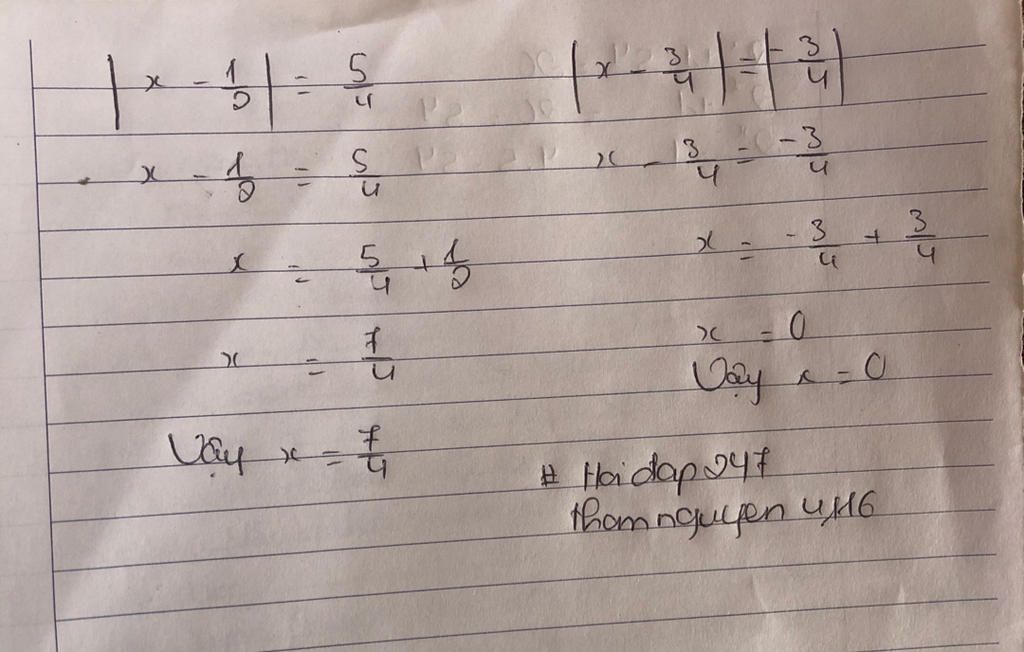 |x - 1/2| = 5/4
x - 1/2 = 5/4
x = 5/4 + 1/2
x = 7/4
Vậy x = 7/4
|x - 3/4| = |-3/4|
x - 3/4 = -3/4
x = -3/4 + 3/4
x = 0
Vậy x = 0
# Hoidap247
thomnguyen